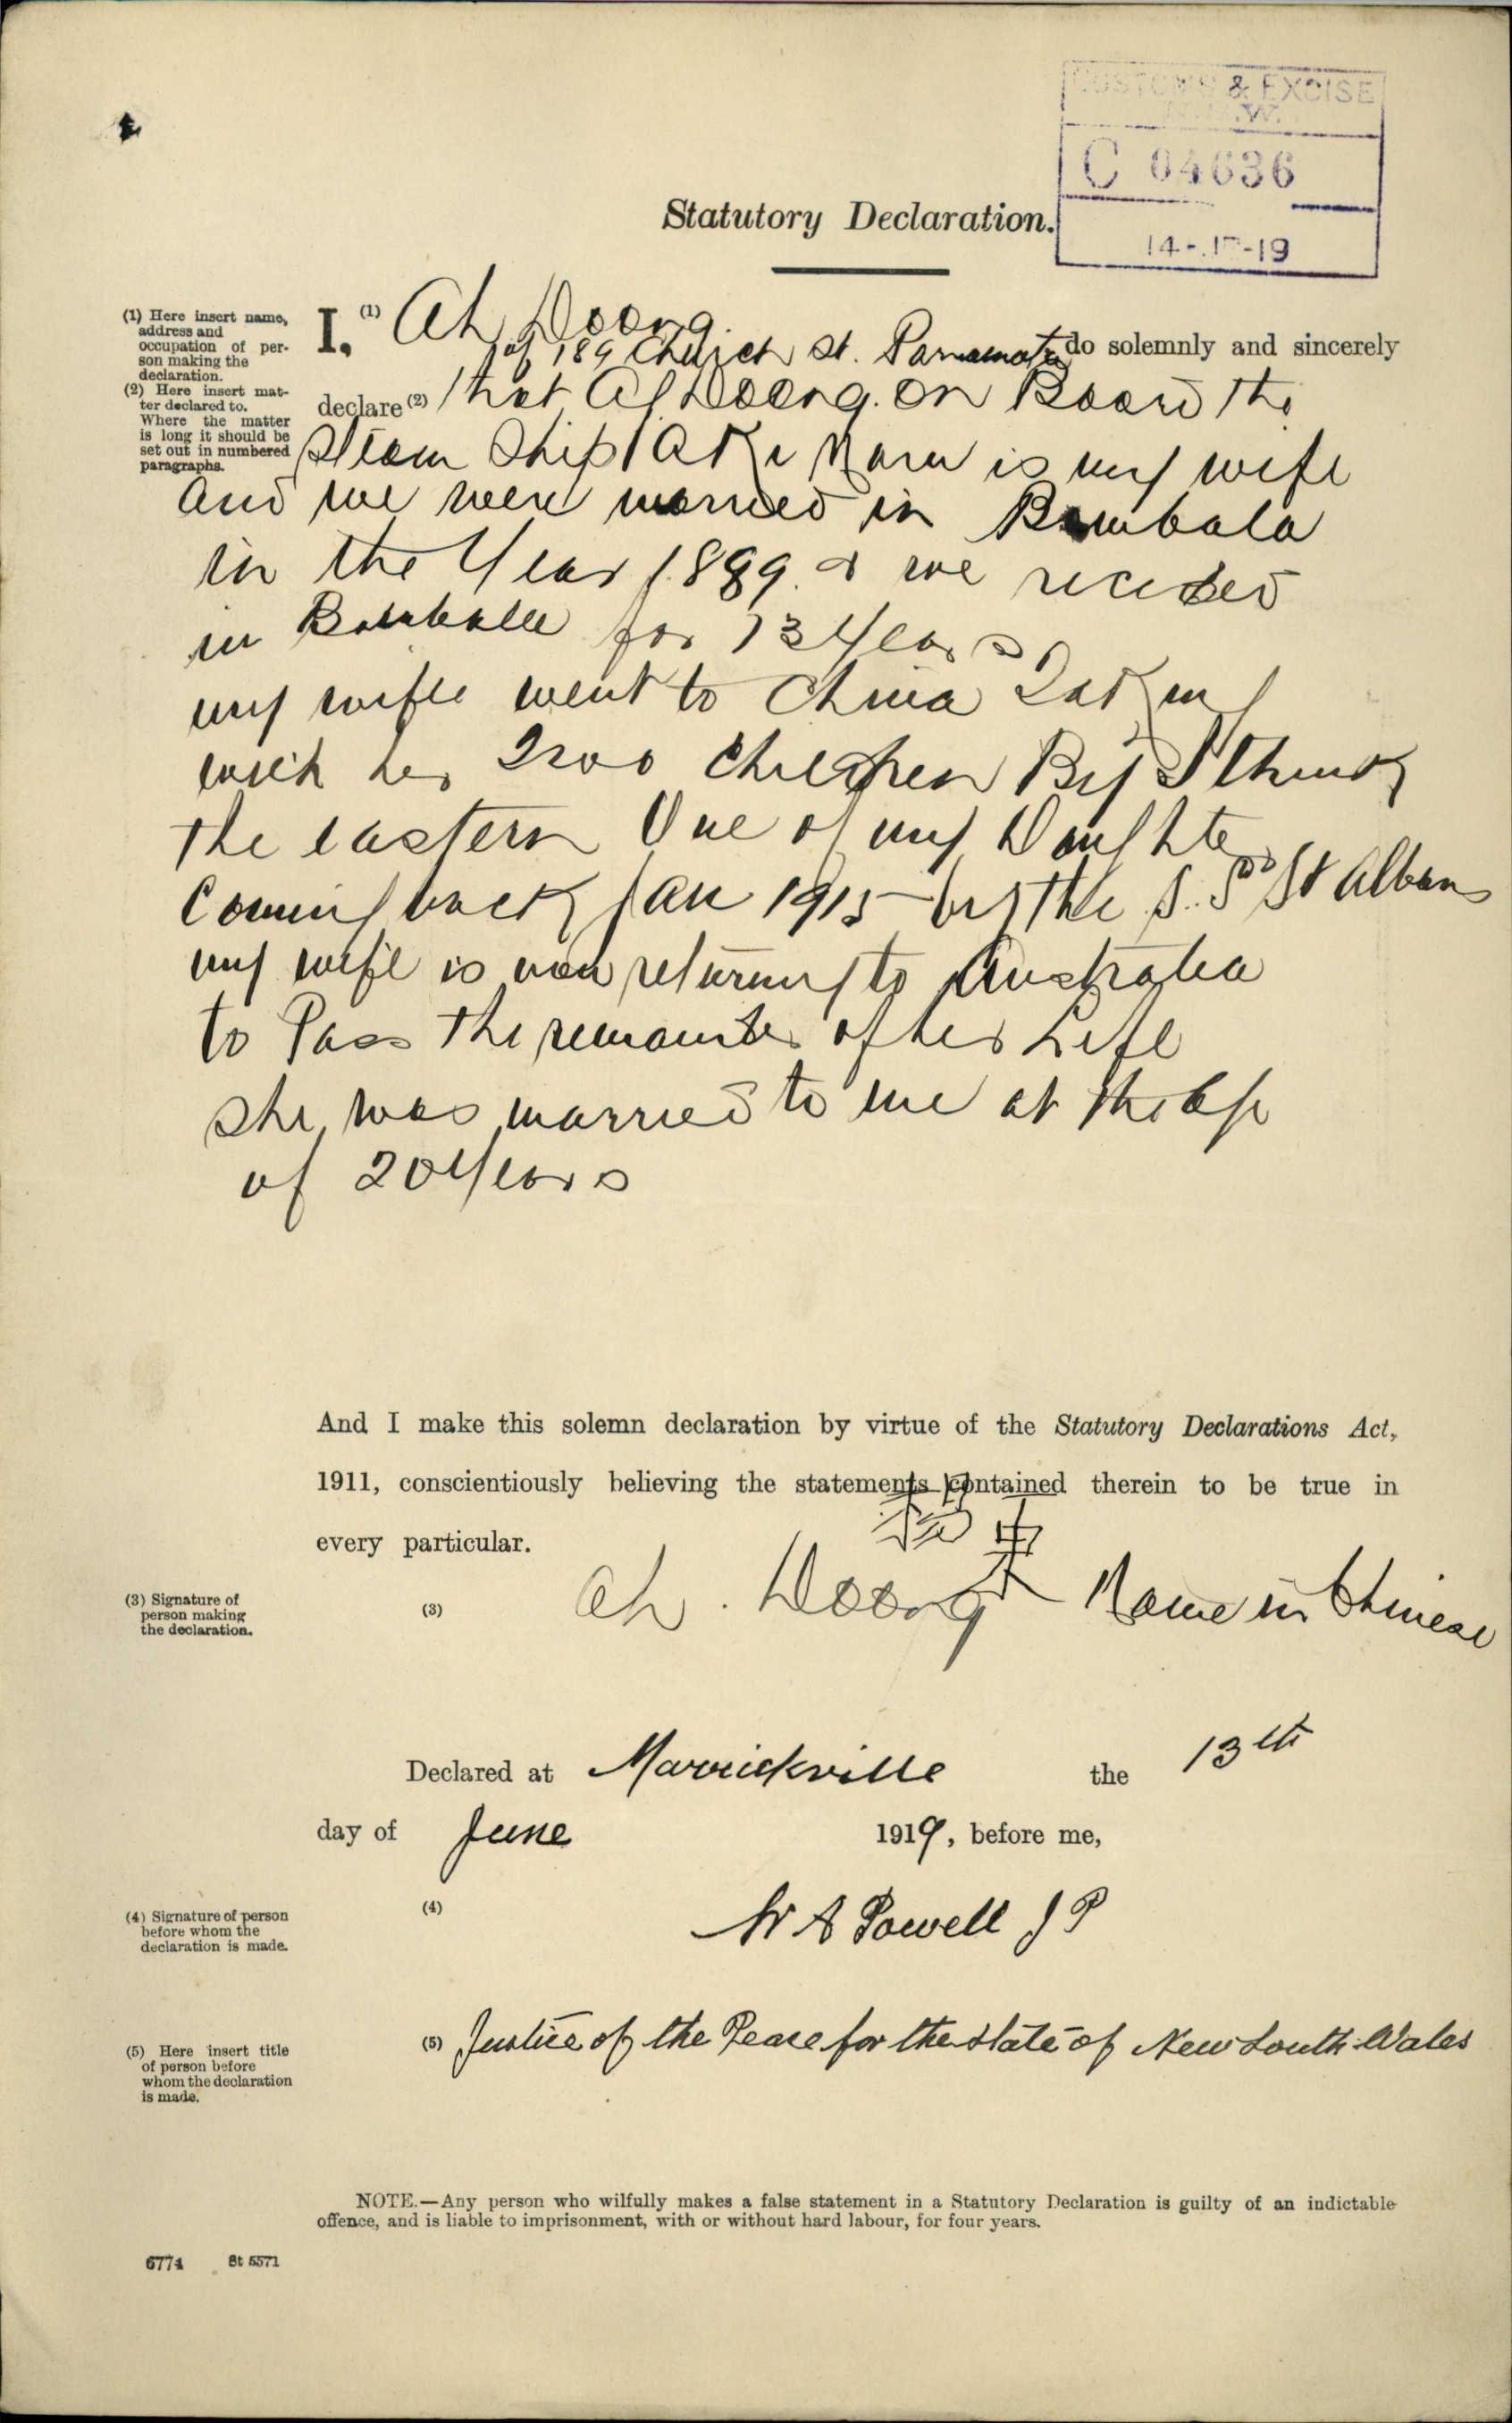 CUSTOMS & EXCISE
N.S.W.
C 04636
14-.1-19
Statutory Declaration.
(1) Here insert name,
address and
occupation of per-
son making the
declaration.
(2) Here insert mat-
ter declared to.
Where the matter
is long it should be
set out in numbered
paragraphs.
I, (1) Ah Doong
of 189 Church St. Parramatta do solemnly and sincerely
declare (2) that Ah Doong. on Board the
Steam Ship Maru is my wife
and we were married in Bombala
in the Year 1889. & we recided
in Bombala for 13 Years
my wife went to China Taking
with her Two Children By I think
the eastern One of my Daughter
Coming back Jan 1915 by the S. S. St Albans
my wife is now returning to Australia
to Pass the remainder of her Life
she was married to me at the Age
of 20 Years
And I make this solemn declaration by virtue of the Statutory Declarations Act,
1911, conscientiously believing the statements contained therein to be true in
every particular.
(3) Signature of
person making
the declaration.
(3) Ah. Doong Name in Chinese
Declared at Marrickville the 13th
day of June 1919, before me,
(4) Signature of person
before whom the
declaration is made.
(4)
W A Powell J P
(5) Here insert title
of person before
whom the declaration
is made.
(5) Justice of the Peace for the State of New South Wales
NOTE.—Any person who wilfully makes a false statement in a Statutory Declaration is guilty of an indictable
offence, and is liable to imprisonment, with or without hard labour, for four years.
6774 St 5571